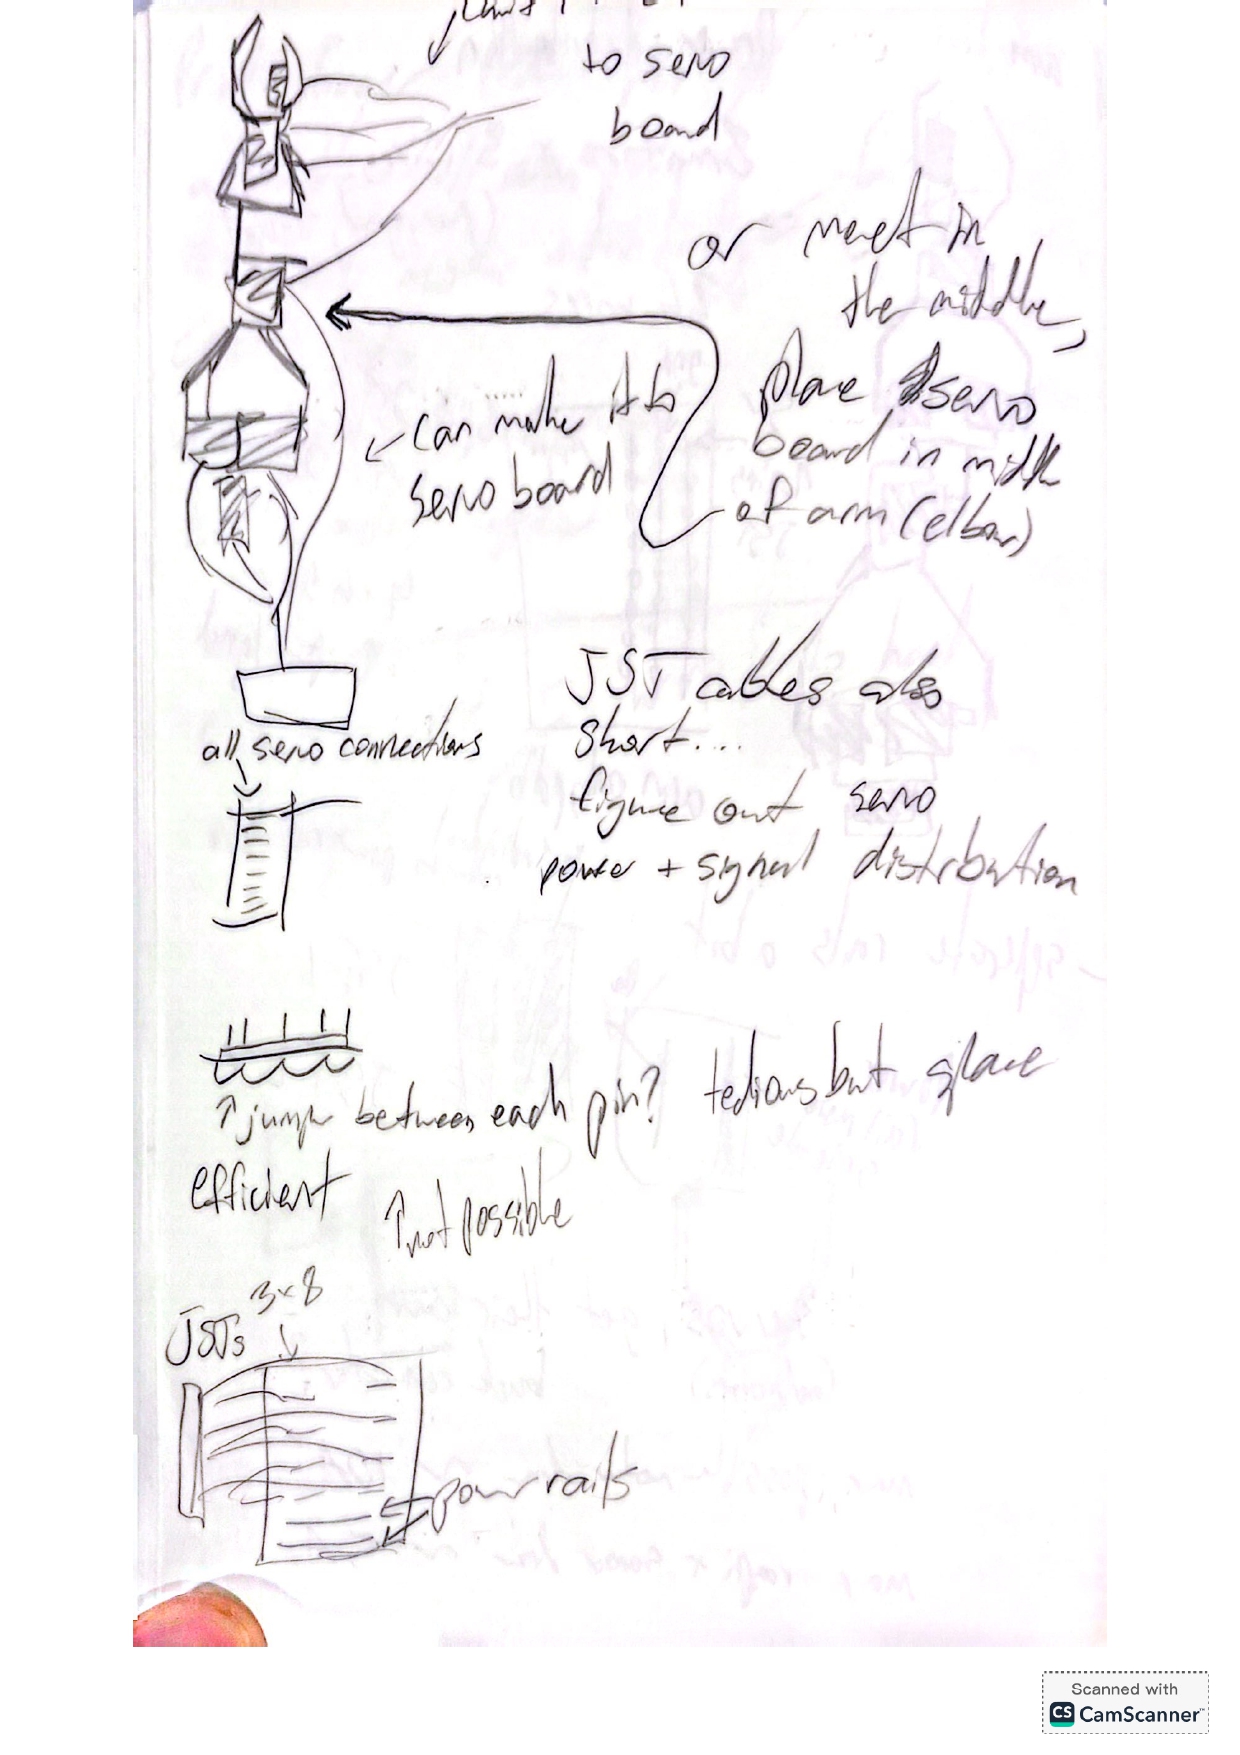 to servo
board
or meet in
the middle,
place servo
board in middle
of arm (elbow)
← can make it to
servo board
JST cables also
short....
figure out servo
power + signal distribution
all servo connections
↑ jump between each pin? tedious but space
efficient ↑ not possible
3x8
JSTs
power rails
Scanned with
CS CamScanner